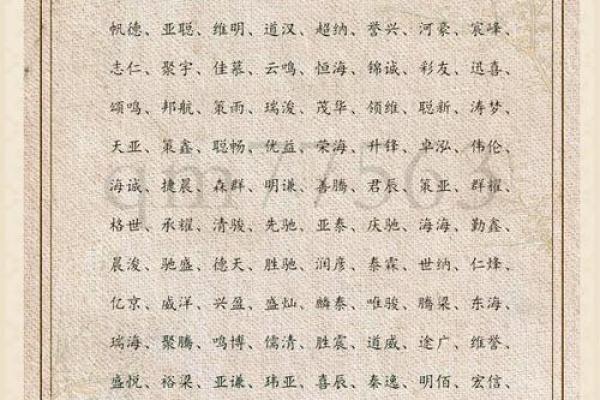 帆德、亚聪、维明、道汉、超纳、誉兴、河豪、宸峰、
志仁、聚宇、佳慕、云鸣、恒海、锦诚、彩友、迅喜、
颂鸣、邦航、策雨、瑞浚、茂华、领维、聪新、涛梦、
天亚、策鑫、聪畅、优益、荣海、升锋、卓泓、伟伦、
海诚、捷晨、森群、明谦、善腾、君辰、策亚、群耀、
格世、承耀、清骏、先驰、亚泰、庆驰、海海、勤鑫、
晨浚、驰盛、德天、胜驰、润彦、泰霖、世纳、仁烽、
亿京、威洋、兴盈、盛灿、麟泰、唯骏、腾梁、东海、
瑞海、聚腾、鸣博、儒清、胜震、道威、途广、维誉、
盛悦、裕梁、亚谦、玮亚、喜辰、秦逸、明佰、宏信、
qm77563